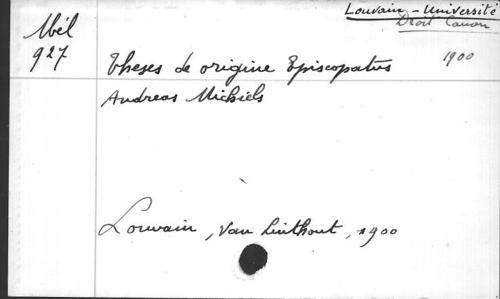 Louvain - Université
Droit Canon
Mél
927
1900
Theses de origine Episcopatus
Andreas Michiels
Louvain, Van Linthout, 1900